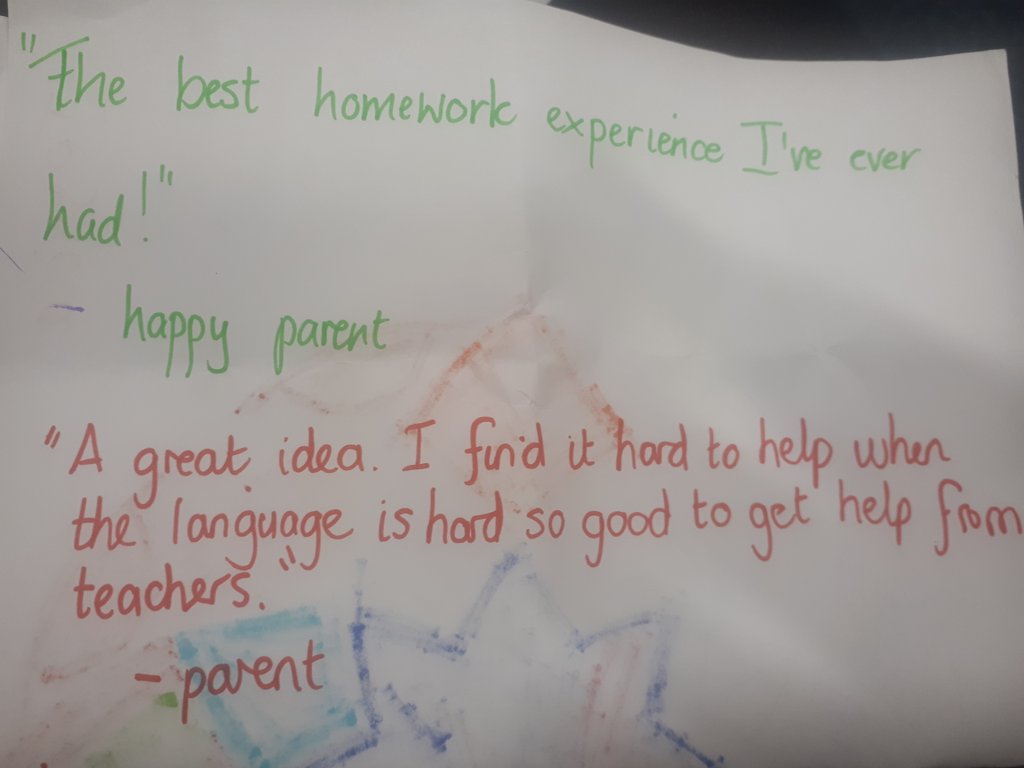 "The best homework experience I've ever
had!"
- happy parent
"A great idea. I find it hard to help when
the language is hard so good to get help from
teachers."
- parent